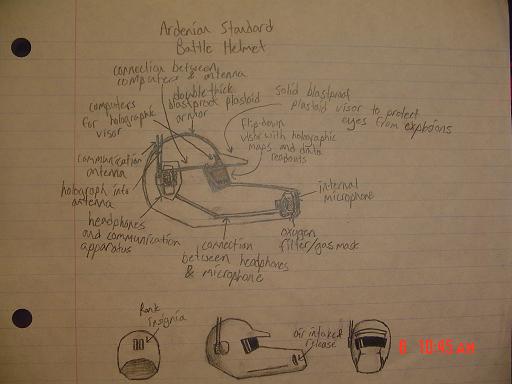 Ardenian Standard
Battle Helmet
connection between
computers & antenna
double-thick
blastproof plastoid
armor
solid blastproof
plastoid visor to protect
eyes from explosions
computers
for holographic
visor
flip-down
visor with holographic
maps and data
readouts
communication
antenna
holograph info
antenna
internal
microphone
headphones
and communication
apparatus
oxygen
filter/gas mask
connection
between headphones
& microphone
Rank
insignia
air intake &
release
8 10:45 AM